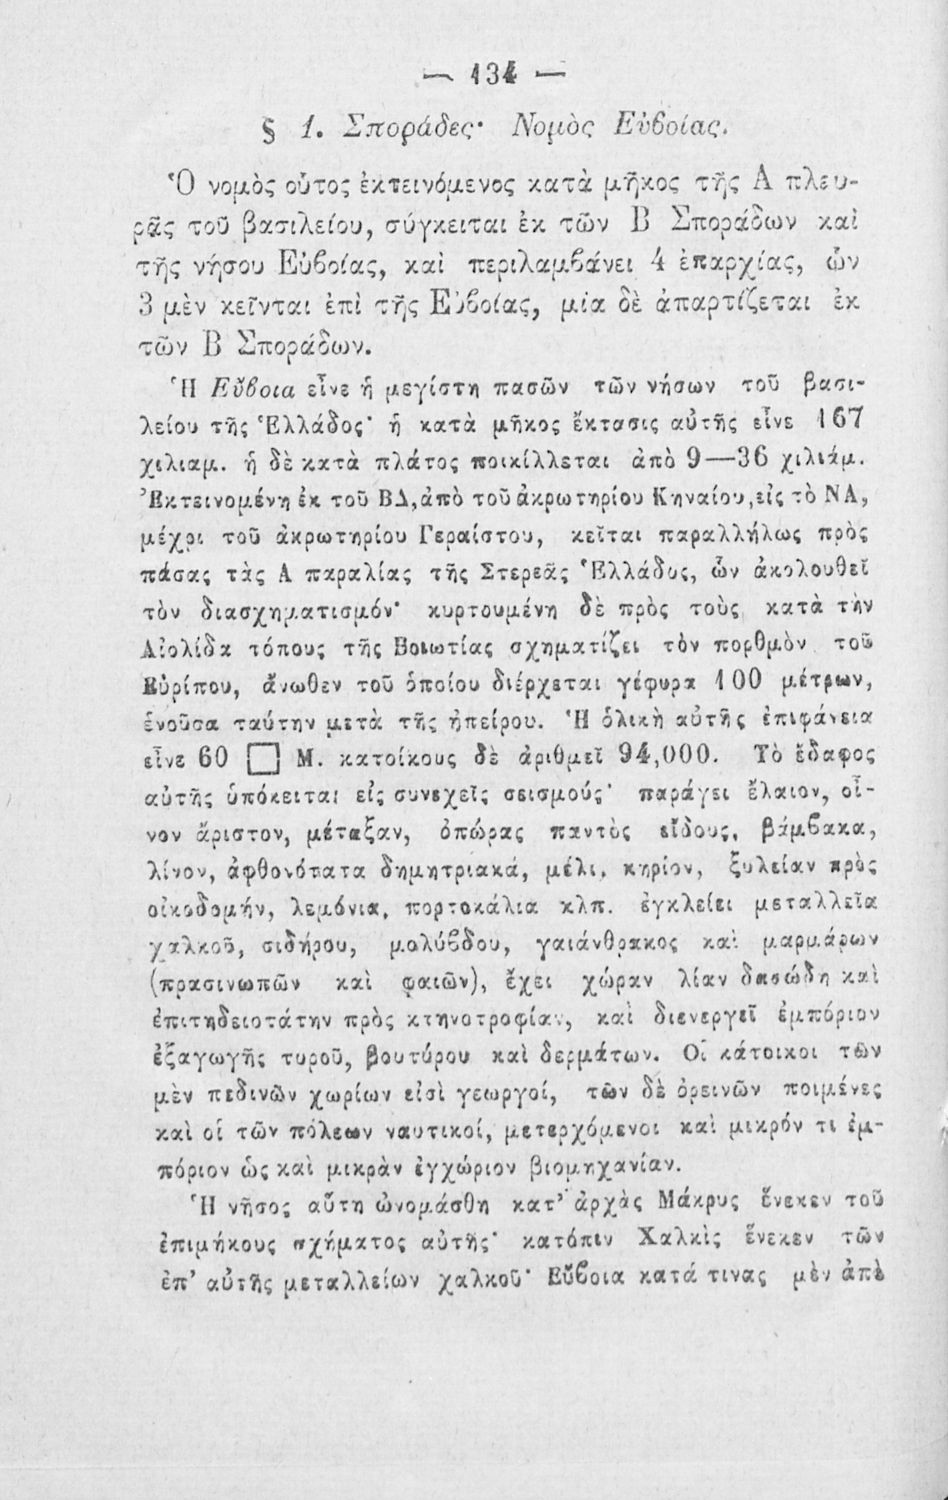 — 134 —
§ 1. Σποράδες· Νομὸς Εὐβοίας.
Ὁ νομὸς οὗτος ἐκτεινόμενος κατὰ μῆκος τῆς Α πλευ-
ρᾶς τοῦ βασιλείου, σύγκειται ἐκ τῶν Β Σποράδων καὶ
τῆς νήσου Εὐβοίας, καὶ περιλαμβάνει 4 ἐπαρχίας, ὧν
3 μὲν κεῖνται ἐπὶ τῆς Εὐβοίας, μία δὲ ἀπαρτίζεται ἐκ
τῶν Β Σποράδων.
Ἡ Εὔβοια εἶνε ἡ μεγίστη πασῶν τῶν νήσων τοῦ βασι-
λείου τῆς Ἑλλάδος· ἡ κατὰ μῆκος ἔκτασις αὐτῆς εἶνε 167
χιλιαμ. ἡ δὲ κατὰ πλάτος ποικίλλεται ἀπὸ 9—36 χιλιάμ.
Ἐκτεινομένη ἐκ τοῦ ΒΔ, ἀπὸ τοῦ ἀκρωτηρίου Κηναίου, εἰς τὸ ΝΑ,
μέχρι τοῦ ἀκρωτηρίου Γεραίστου, κεῖται παραλλήλως πρὸς
πάσας τὰς Α παραλίας τῆς Στερεᾶς Ἑλλάδος, ὧν ἀκολουθεῖ
τὸν διασχηματισμόν· κυρτουμένη δὲ πρὸς τοὺς κατὰ τὴν
Αἰολίδα τόπους τῆς Βοιωτίας σχηματίζει τὸν πορθμὸν τοῦ
Εὐρίπου, ἄνωθεν τοῦ ὁποίου διέρχεται γέφυρα 100 μέτρων,
ἑνοῦσα ταύτην μετὰ τῆς ἠπείρου. Ἡ ὁλικὴ αὐτῆς ἐπιφάνεια
εἶνε 60 □ Μ. κατοίκους δὲ ἀριθμεῖ 94,000. Τὸ ἔδαφος
αὐτῆς ὑπόκειται εἰς συνεχεῖς σεισμούς· παράγει ἔλαιον, οἶ-
νον ἄριστον, μέταξαν, ὀπώρας παντὸς εἴδους, βάμβακα,
λίνον, ἀφθονότατα δημητριακά, μέλι, κηρίον, ξυλείαν πρὸς
οἰκοδομήν, λεμόνια, πορτοκάλια κλπ. ἐγκλείει μεταλλεῖα
χαλκοῦ, σιδήρου, μολύβδου, γαιάνθρακος καὶ μαρμάρων
(πρασινωπῶν καὶ φαιῶν), ἔχει χώραν λίαν δασώδη καὶ
ἐπιτηδειοτάτην πρὸς κτηνοτροφίαν, καὶ διενεργεῖ ἐμπόριον
ἐξαγωγῆς τυροῦ, βουτύρου καὶ δερμάτων. Οἱ κάτοικοι τῶν
μὲν πεδινῶν χωρίων εἰσὶ γεωργοί, τῶν δὲ ὀρεινῶν ποιμένες
καὶ οἱ τῶν πόλεων ναυτικοί, μετερχόμενοι καὶ μικρόν τι ἐμ-
πόριον ὡς καὶ μικρὰν ἐγχώριον βιομηχανίαν.
Ἡ νῆσος αὕτη ὠνομάσθη κατ’ ἀρχὰς Μάκρυς ἕνεκεν τοῦ
ἐπιμήκους σχήματος αὐτῆς· κατόπιν Χαλκὶς ἕνεκεν τῶν
ἐπ’ αὐτῆς μεταλλείων χαλκοῦ· Εὔβοια κατά τινας μὲν ἀπὸ